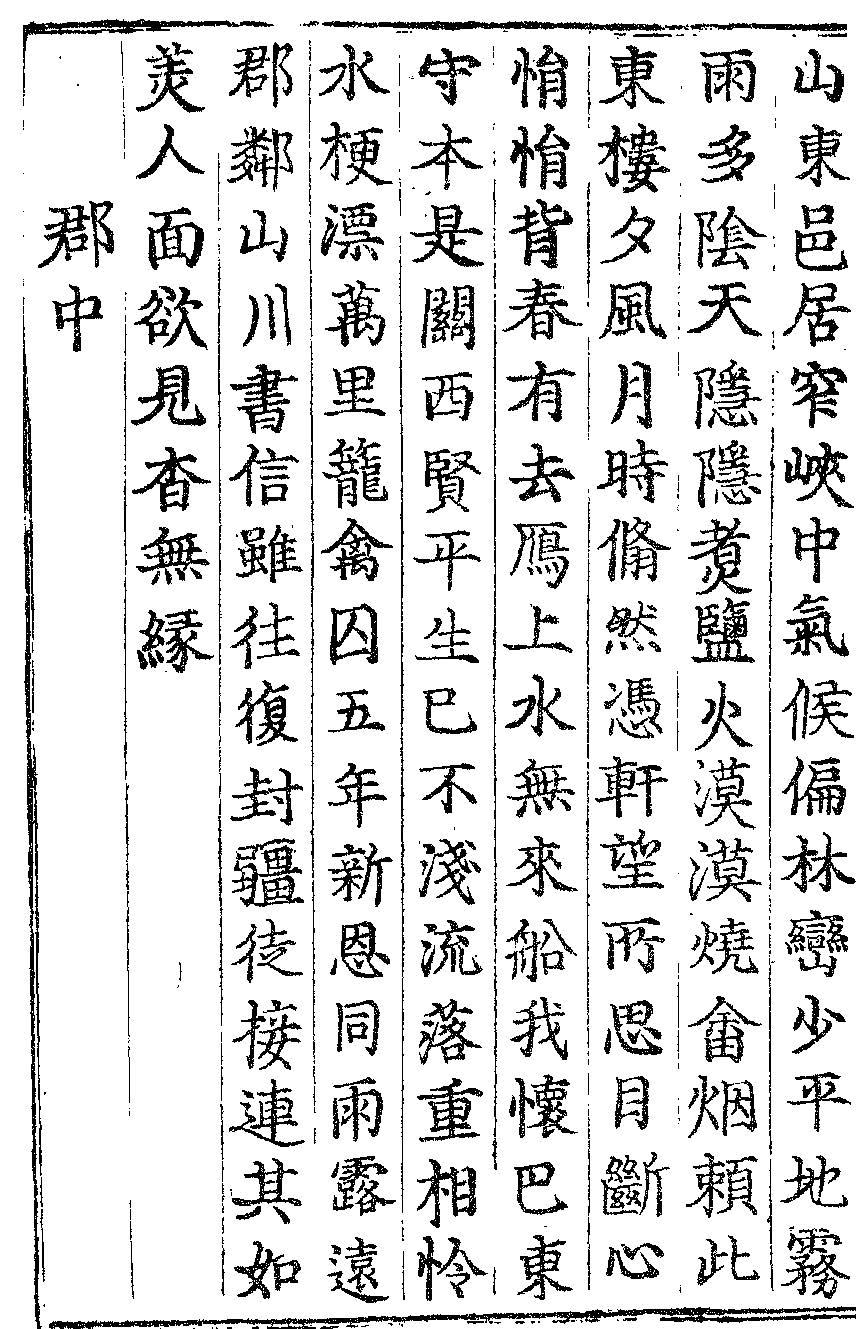 山東邑居窄峽中氣候偏林巒少平地霧
雨多陰天隱隱煑鹽火漠漠燒畬烟頼此
東樓夕風月時翛然憑軒望所思目斷心
悁悁背春有去鴈上水無來船我懷巴東
守本是關西賢平生已不淺流落重相怜
水梗漂萬里籠禽囚五年新恩同雨露遠
郡鄰山川書信雖往復封疆徒接連其如
美人面欲見杳無緣
郡中